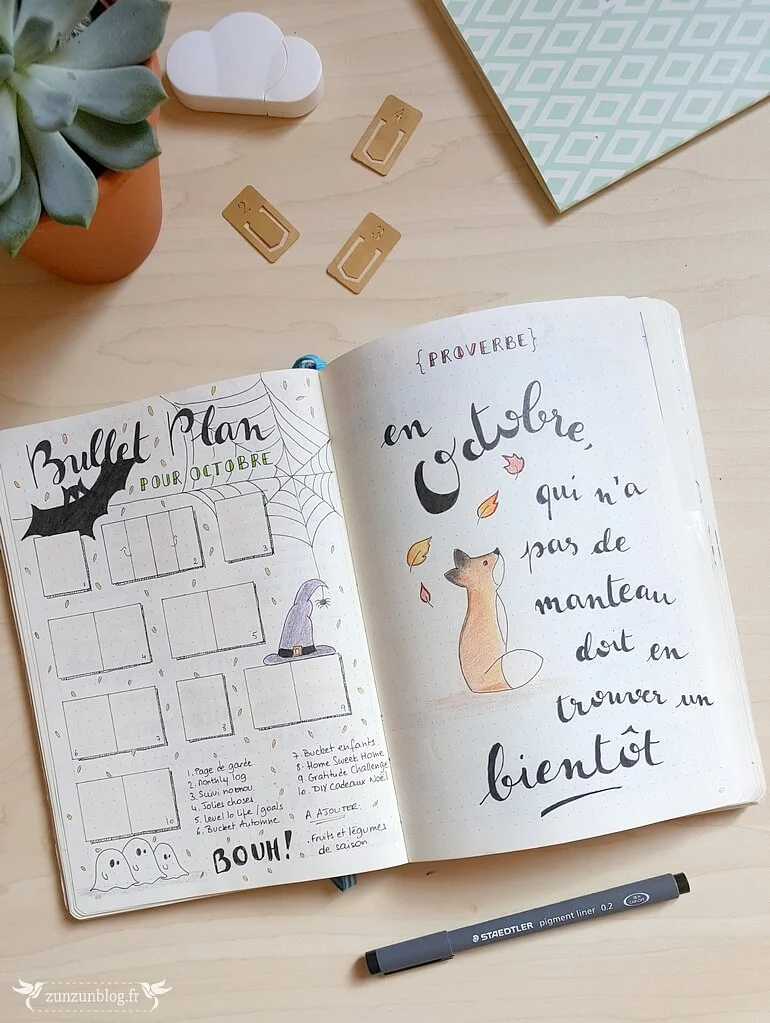 4
2
3
Bullet Plan
POUR OCTOBRE
1
2
3
4
5
6
7
8
9
10
1. Page de garde
2. monthly log
3. Suivi
4. Jolies choses
5. Level 10 life / goals
6. Bucket Automne
7. Bucket enfants
8. Home Sweet Home
9. Gratitude Challenge
10. DIY Cadeaux Noël
A AJOUTER:
. Fruits et légumes
de saison
BOUH!
{PROVERBE}
en
Octobre,
qui n'a
pas de
manteau
doit en
trouver un
bientôt
STAEDTLER pigment liner 0.2
zunzunblog.fr